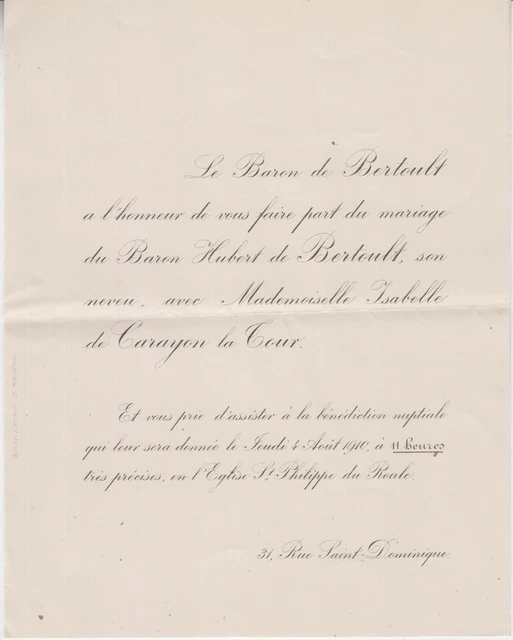 Le Baron de Bertoult
a l'honneur de vous faire part du mariage
du Baron Hubert de Bertoult, son
neveu, avec Mademoiselle Isabelle
de Carayon la Tour.
Et vous prie d'assister à la bénédiction nuptiale
qui leur sera donnée le Jeudi 4 Août 1910, à 11 heures
très précises, en l'Eglise St. Philippe du Roule.
31, Rue Saint-Dominique.